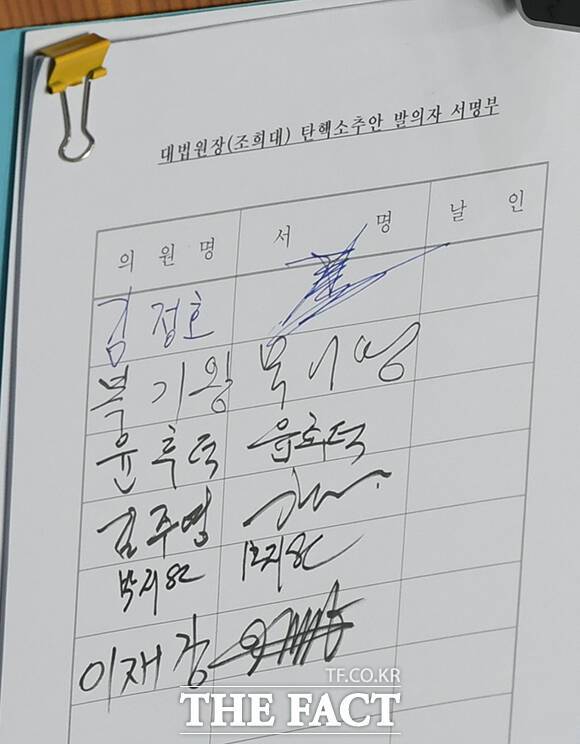 대법원장(조희대) 탄핵소추안 발의자 서명부
의 원 명 서 명 날 인
김정호
복기왕 복기왕
윤후덕 윤후덕
김주영
박지원 박지원
이재강
TF.CO.KR
THE FACT